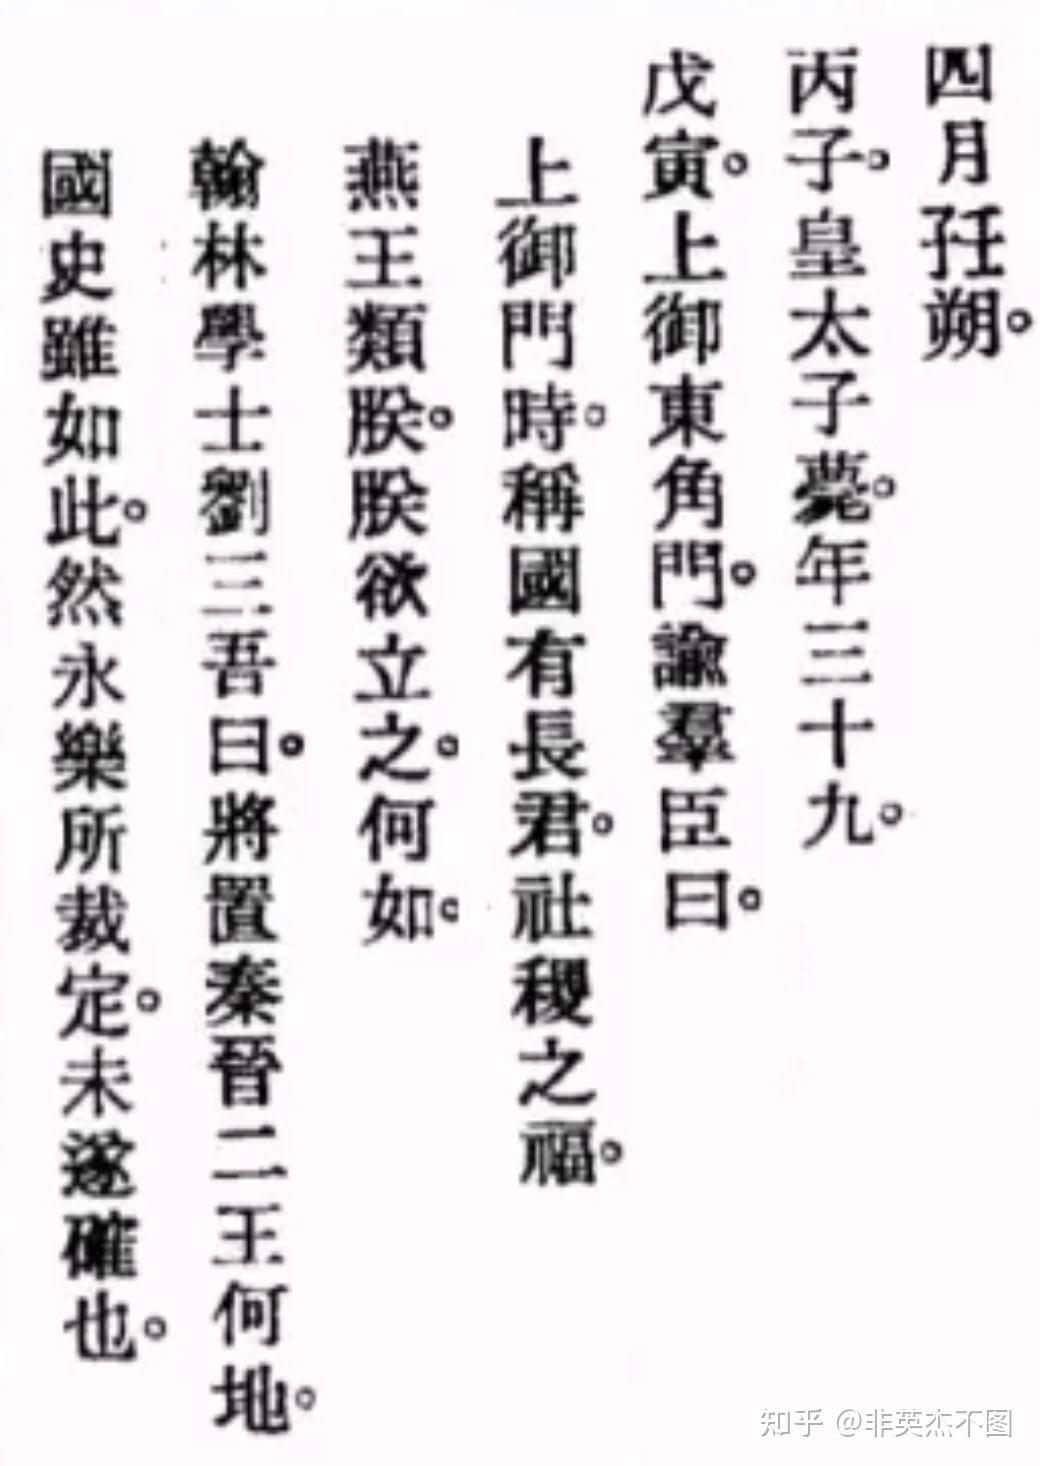 四月㸒朔。
丙子。皇太子薨。年三十九。
戊寅。上御東角門。諭羣臣曰。
上御門時。稱國有長君。社稷之福。
燕王類朕。朕欲立之。何如。
翰林學士劉三吾曰。將置秦晉二王何地。
國史雖如此。然永樂所裁定。未遂確也。
知乎 @非英杰不图